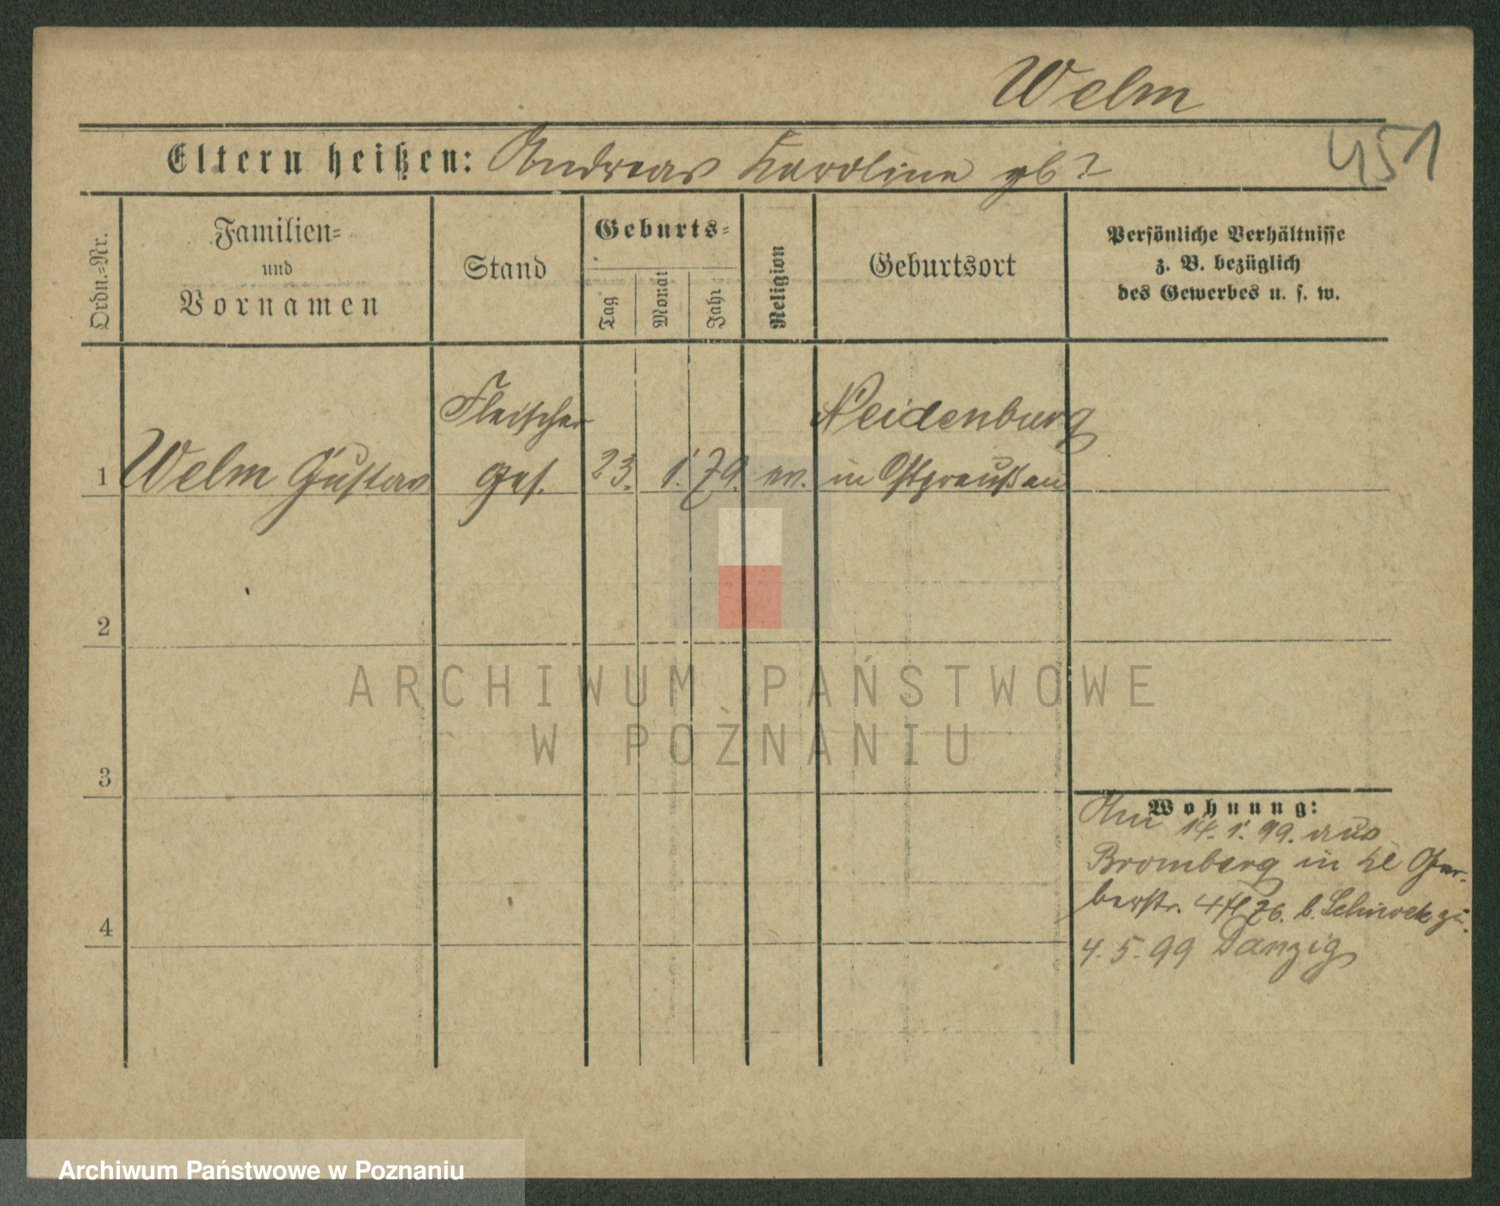 Welm
Eltern heißen: Andreas Karoline gb?
451
Ordn.-Nr.
Familien-
und
Vornamen
Stand
Geburts-
Tag
Monat
Jahr
Religion
Geburtsort
Persönliche Verhältnisse
z. B. bezüglich
des Gewerbes u. s. w.
Fleischer
Neidenburg
1 Welm Gustav Ges. 23. 1. 79. ev. in Ostpreußen
2
3
4
Wohnung:
Am 14. 1. 99. aus
Bromberg in kl Ger-
berstr. 4 b. zu.
4. 5. 99 Danzig
ARCHIWUM PAŃSTWOWE
W POZNANIU
Archiwum Państwowe w Poznaniu